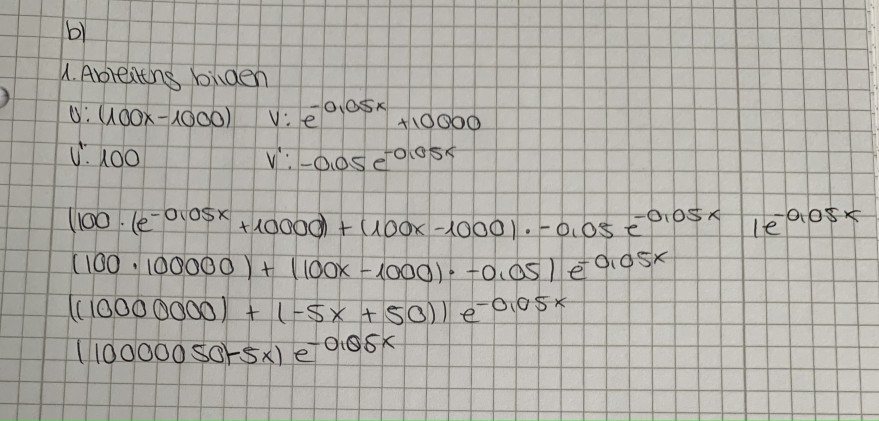 b)
1. Ableitung bilden
U: (100x-1000) V: e^-0,05x +10000
U': 100 V': -0,05 e^-0,05x
(100 · (e^-0,05x +10000) + (100x -1000) · -0,05 e^-0,05x |e^-0,05x
(100 · 100000) + (100x - 1000) · -0,05) e^-0,05x
((10000000) + (-5x + 50)) e^-0,05x
(10000050-5x) e^-0,05x